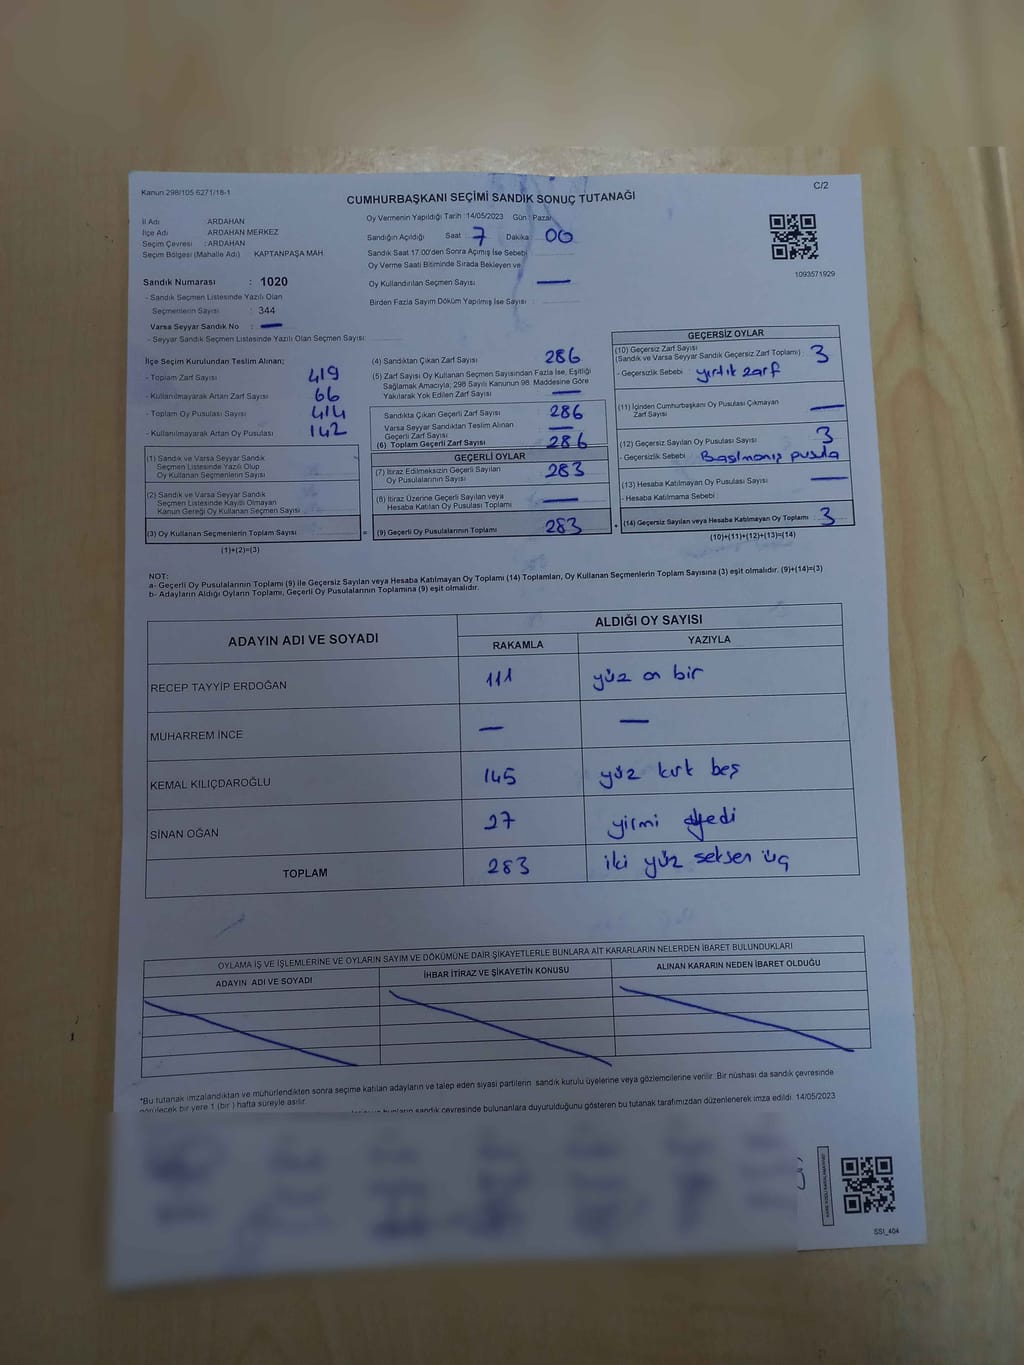 Kanun 298/105 6271/18-1
C/2
CUMHURBAŞKANI SEÇİMİ SANDIK SONUÇ TUTANAĞI
İl Adı ARDAHAN
İlçe Adı ARDAHAN MERKEZ
Seçim Çevresi : ARDAHAN
Seçim Bölgesi (Mahalle Adı) KAPTANPAŞA MAH.
Sandık Numarası : 1020
- Sandık Seçmen Listesinde Yazılı Olan
Seçmenlerin Sayısı : 344
Varsa Seyyar Sandık No : —
- Seyyar Sandık Seçmen Listesinde Yazılı Olan Seçmen Sayısı:
Oy Vermenin Yapıldığı Tarih : 14/05/2023 Gün : Pazar
Sandığın Açıldığı Saat : 7 Dakika : 00
Sandık Saat 17:00'den Sonra Açılmış İse Sebebi
Oy Verme Saati Bitiminde Sırada Bekleyen ve
Oy Kullandırılan Seçmen Sayısı —
Birden Fazla Sayım Döküm Yapılmış İse Sayısı :
1093571929
İlçe Seçim Kurulundan Teslim Alınan;
- Toplam Zarf Sayısı 419
- Kullanılmayarak Artan Zarf Sayısı 66
- Toplam Oy Pusulası Sayısı 414
- Kullanılmayarak Artan Oy Pusulası 142
(1) Sandık ve Varsa Seyyar Sandık
Seçmen Listesinde Yazılı Olup
Oy Kullanan Seçmenlerin Sayısı
(2) Sandık ve Varsa Seyyar Sandık
Seçmen Listesinde Kayıtlı Olmayan
Kanun Gereği Oy Kullanan Seçmen Sayısı
(3) Oy Kullanan Seçmenlerin Toplam Sayısı =
(1)+(2)=(3)
(4) Sandıktan Çıkan Zarf Sayısı 286
(5) Zarf Sayısı Oy Kullanan Seçmen Sayısından Fazla İse, Eşitliği
Sağlamak Amacıyla; 298 Sayılı Kanunun 98. Maddesine Göre
Yakılarak Yok Edilen Zarf Sayısı —
Sandıkta Çıkan Geçerli Zarf Sayısı 286
Varsa Seyyar Sandıktan Teslim Alınan
Geçerli Zarf Sayısı —
(6) Toplam Geçerli Zarf Sayısı 286
GEÇERLİ OYLAR
(7) İtiraz Edilmeksizin Geçerli Sayılan
Oy Pusulalarının Sayısı 283
(8) İtiraz Üzerine Geçerli Sayılan veya
Hesaba Katılan Oy Pusulası Toplamı —
(9) Geçerli Oy Pusulalarının Toplamı 283 +
GEÇERSİZ OYLAR
(10) Geçersiz Zarf Sayısı
(Sandık ve Varsa Seyyar Sandık Geçersiz Zarf Toplamı) 3
- Geçersizlik Sebebi : yırtık zarf
(11) İçinden Cumhurbaşkanı Oy Pusulası Çıkmayan
Zarf Sayısı —
(12) Geçersiz Sayılan Oy Pusulası Sayısı 3
- Geçersizlik Sebebi Basılmamış pusula
(13) Hesaba Katılmayan Oy Pusulası Sayısı —
- Hesaba Katılmama Sebebi :
(14) Geçersiz Sayılan veya Hesaba Katılmayan Oy Toplamı 3
(10)+(11)+(12)+(13)=(14)
NOT:
a- Geçerli Oy Pusulalarının Toplamı (9) ile Geçersiz Sayılan veya Hesaba Katılmayan Oy Toplamı (14) Toplamları, Oy Kullanan Seçmenlerin Toplam Sayısına (3) eşit olmalıdır. (9)+(14)=(3)
b- Adayların Aldığı Oyların Toplamı, Geçerli Oy Pusulalarının Toplamına (9) eşit olmalıdır.
ADAYIN ADI VE SOYADI ALDIĞI OY SAYISI
RAKAMLA YAZIYLA
RECEP TAYYİP ERDOĞAN 111 yüz on bir
MUHARREM İNCE — —
KEMAL KILIÇDAROĞLU 145 yüz kırk beş
SİNAN OĞAN 27 yirmi yedi
TOPLAM 283 iki yüz seksen üç
OYLAMA İŞ VE İŞLEMLERİNE VE OYLARIN SAYIM VE DÖKÜMÜNE DAİR ŞİKAYETLERLE BUNLARA AİT KARARLARIN NELERDEN İBARET BULUNDUKLARI
ADAYIN ADI VE SOYADI İHBAR İTİRAZ VE ŞİKAYETİN KONUSU ALINAN KARARIN NEDEN İBARET OLDUĞU
*Bu tutanak imzalandıktan ve mühürlendikten sonra seçime katılan adayların ve talep eden siyasi partilerin sandık kurulu üyelerine veya gözlemcilerine verilir. Bir nüshası da sandık çevresinde
görülecek bir yere 1 (bir ) hafta süreyle asılır.
bunların sandık çevresinde bulunanlara duyurulduğunu gösteren bu tutanak tarafımızdan düzenlenerek imza edildi. 14/05/2023
SSI_404